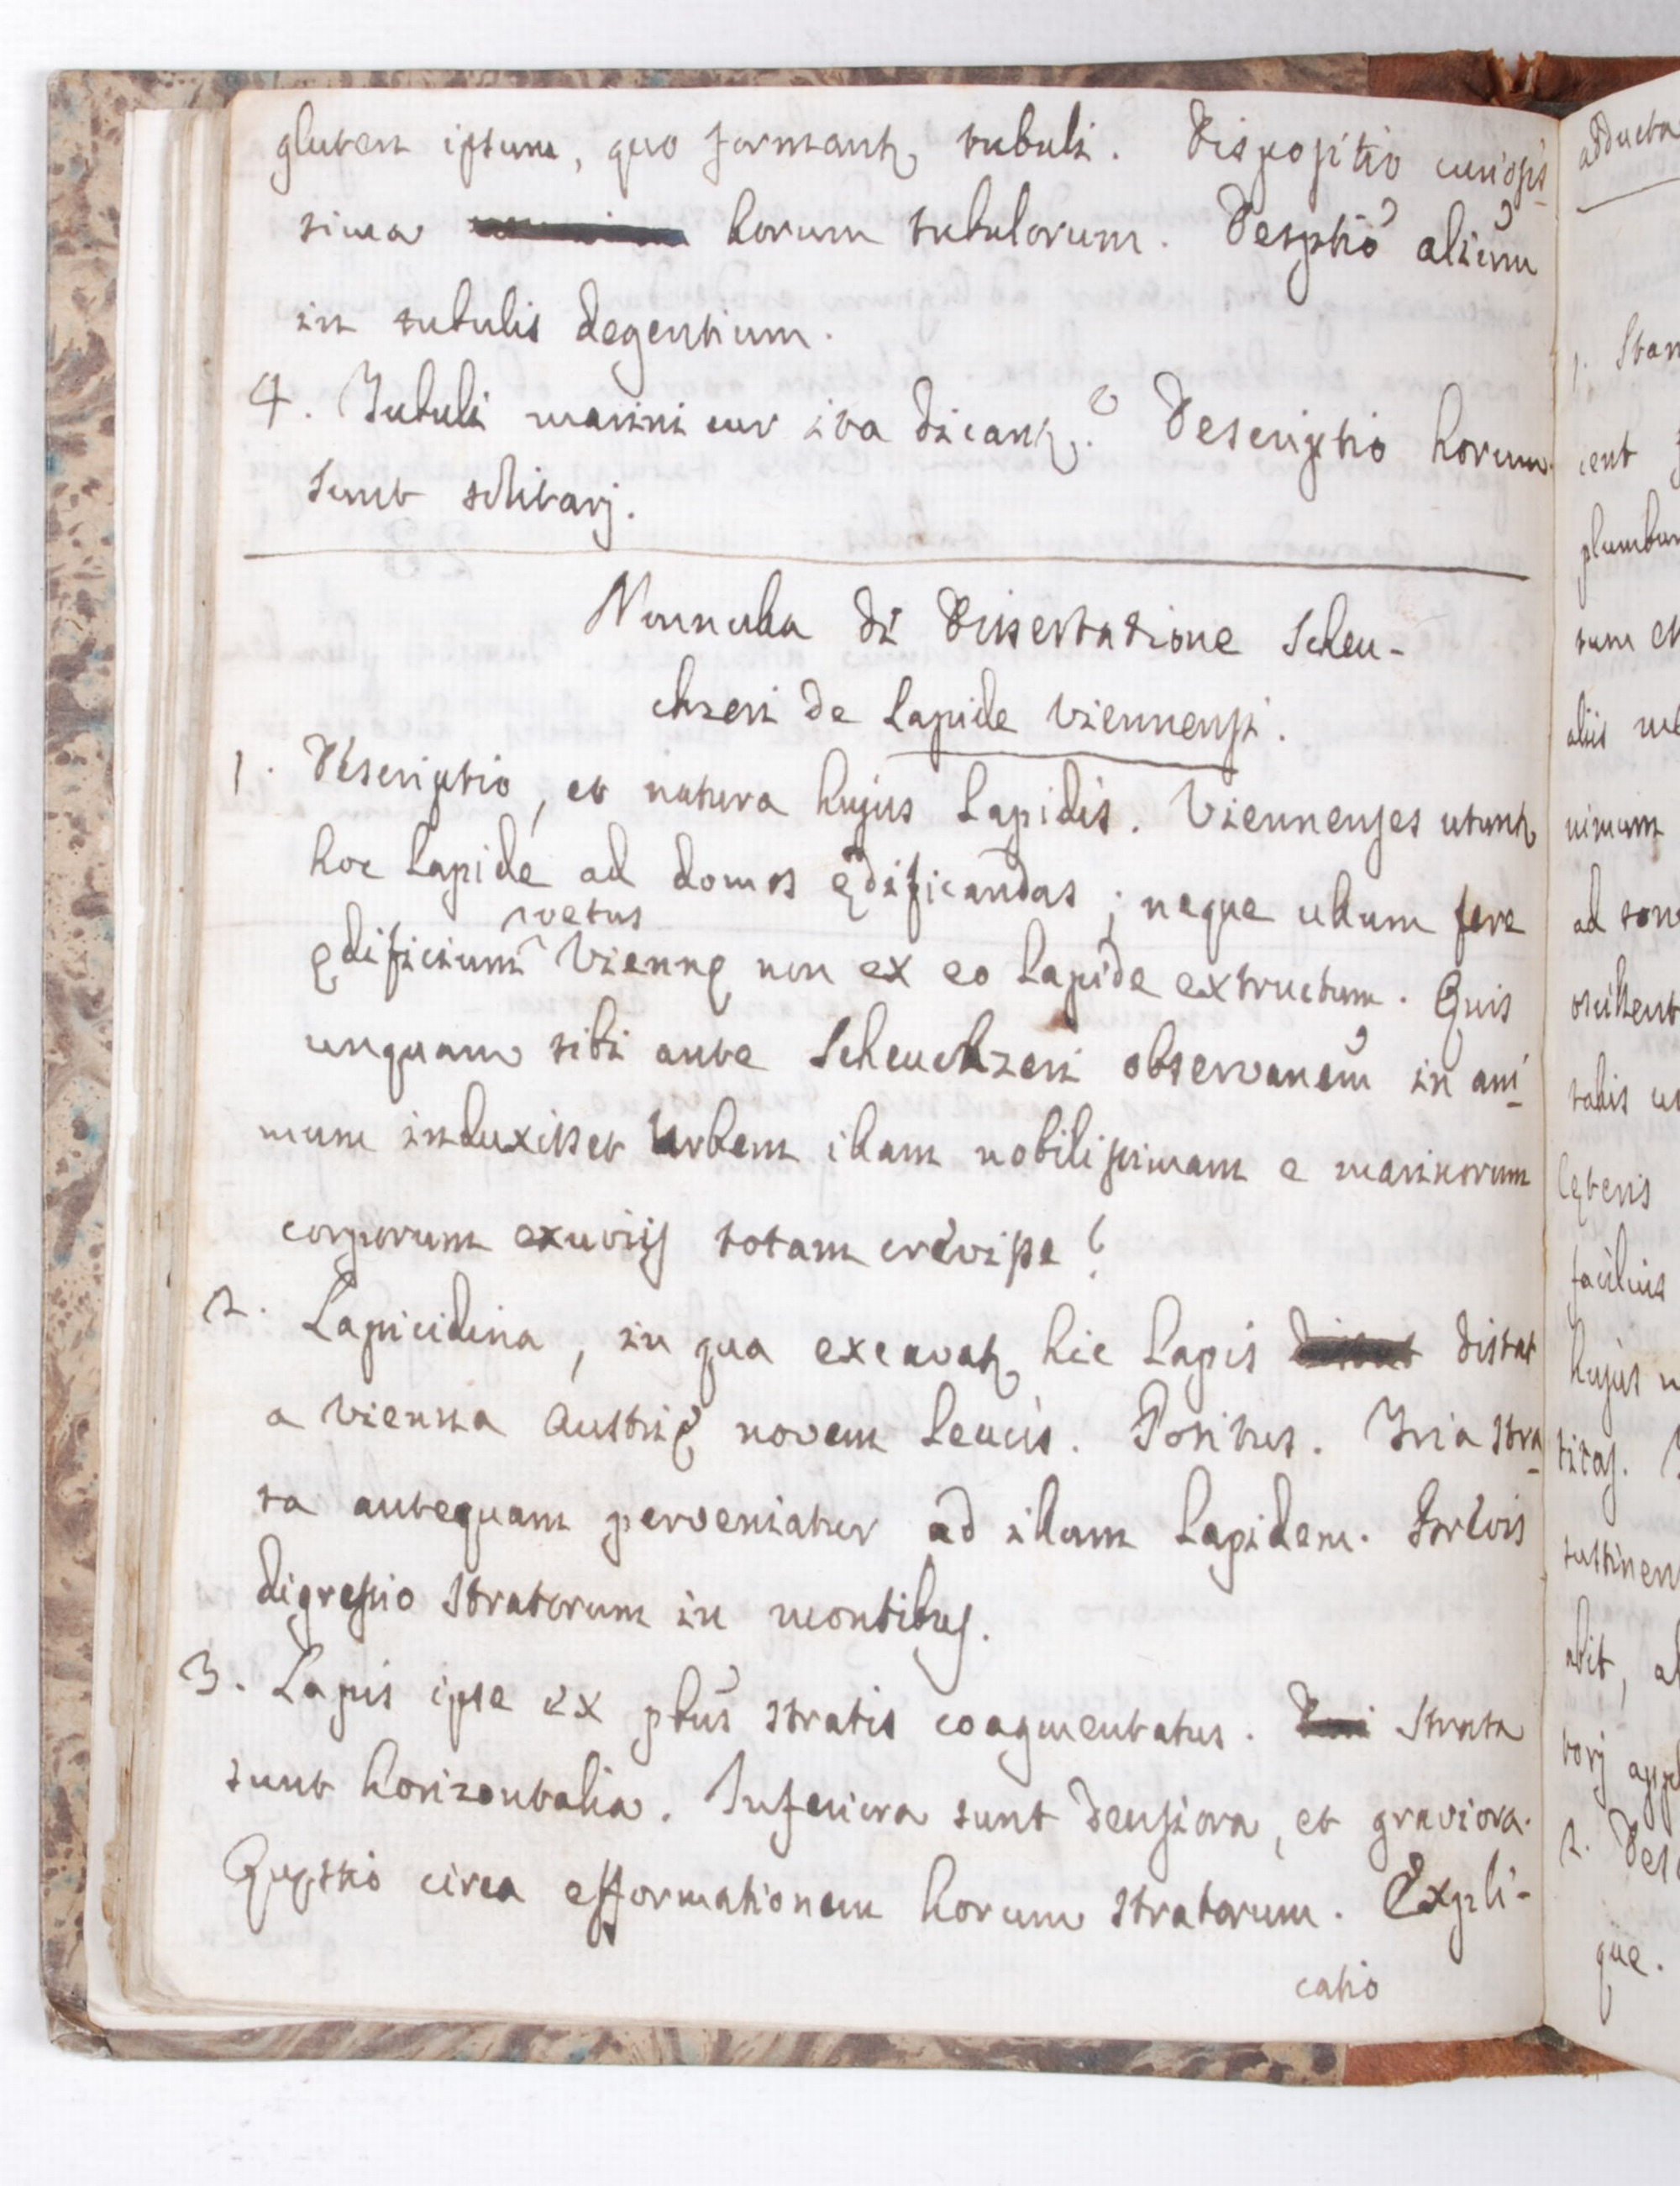 gluten ipsum, quo formantr tubuli. Dispositio curiosis-
sima horum tubulorum. Descptiō aliūm
in tubulis degentium.
4. Tubuli marini cur ita dicantr? Descriptio horum.
sunt solitarj.
Nonnulla di Dissertatione Scheu-
chzeri de Lapide Viennensi.
1. Descriptio, et natura hujus Lapidis. Viennenses utuntr
hoc Lapide ad domos ędificandas; neque ullum fere
ędificium vetus Viennę non ex eo Lapide extructum. Quis
unquam sibi ante Scheuchzeri observanēm in ani-
mum induxisset Urbem illam nobilissimam e marinorum
corporum exuvijs totam crevisse?
2. Lapicidina, in qua excavatr hic Lapis distat
a Vienna Austrię novem Leucis. Positus. Tria stra-
ta antequam perveniatur ad illum Lapidem. Brevis
digressio stratorum in montibus.
3. Lapis ipse ex plbus stratis coagmentatus. Strata
sunt horizontalia. Inferiora sunt densiora, et graviora.
Quęstio circa efformationem horum stratorum. Expli-
catio
adducta
1. Stan
cent
plumbum
sum et
aliis
nimum
ad son
oscillent
talis
lęteris
facilius
hujus
titas.
sustinen
abit, al
torj appl
2. Des
que.